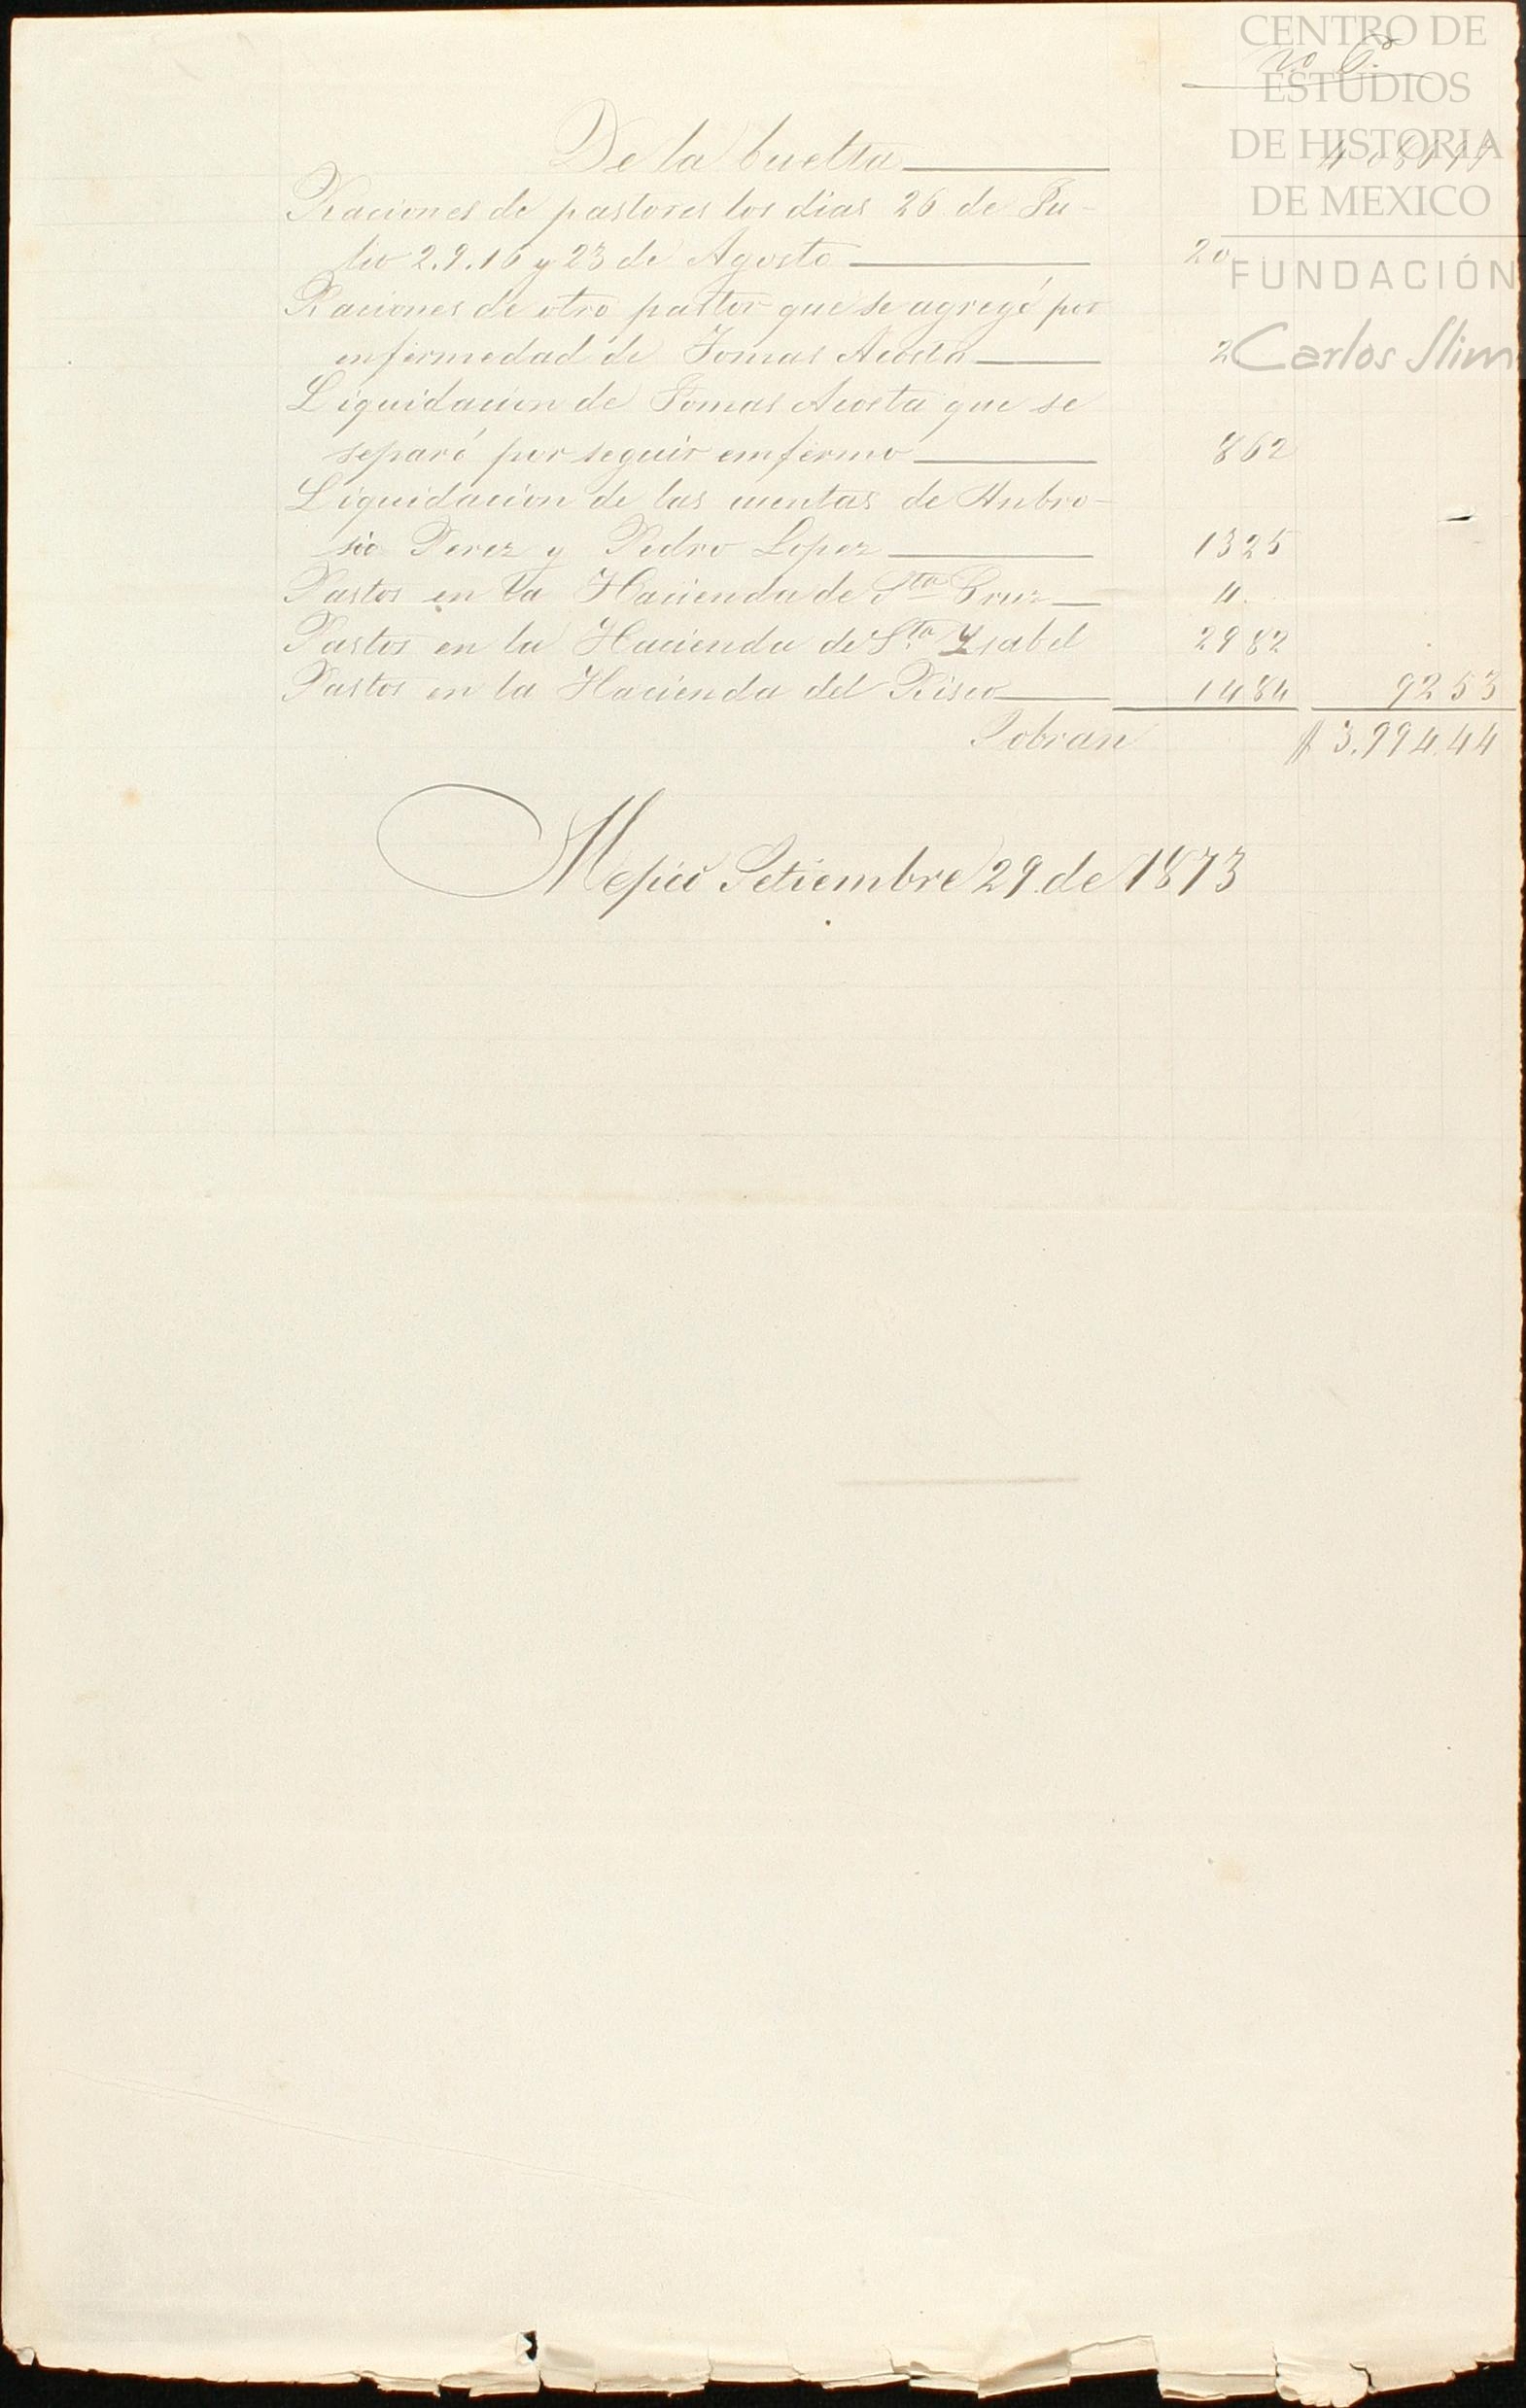 CENTRO DE
ESTUDIOS
DE HISTORIA
DE MEXICO
FUNDACIÓN
Carlos Slim
De la buelta
Raciones de pastores los dias 26 de Ju-
lio 2.9.16 y 23 de Agosto 20
Raciones de otro pastor que se agregó por
enfermedad de Tomas Acosta 2
Liquidacion de Tomas Acosta que se
separó por seguir emfermo 862
Liquidacion de las cuentas de Anbro-
sio Perez y Pedro Lopez 1325
Pastos en la Hacienda de Sta Cruz 4
Pastos en la Hacienda de Sta Ysabel 2982
Pastos en la Hacienda del Risco 1484 9253
Sobran $ 3.994.44
Mejico Setiembre 29 de 1873